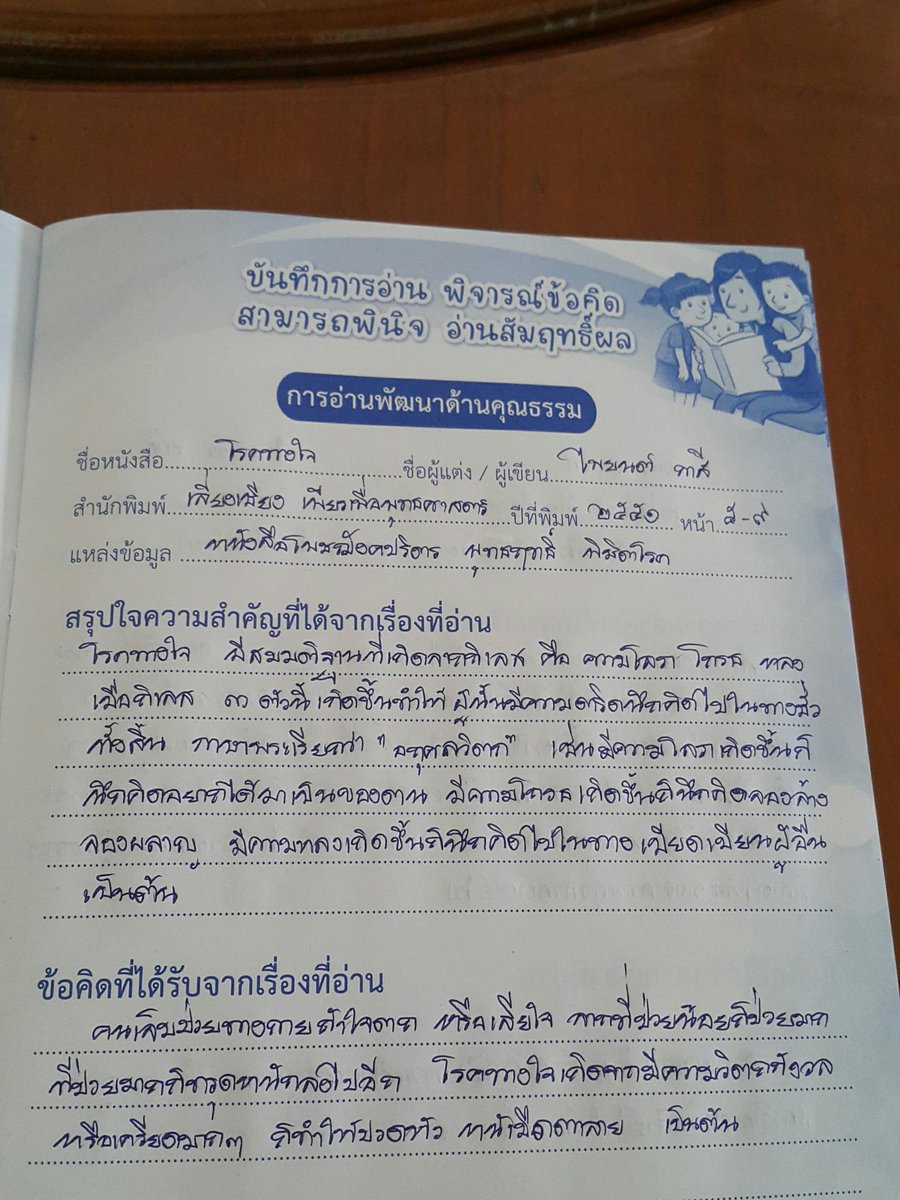 บันทึกการอ่าน พิจารณ์ข้อคิด
สามารถพินิจ อ่านสัมฤทธิ์ผล
การอ่านพัฒนาด้านคุณธรรม
ชื่อหนังสือ โรคทางใจ ชื่อผู้แต่ง / ผู้เขียน ไพยนต์ กาสี
สำนักพิมพ์ เลี่ยงเชียง เพียรเพื่อพุทธศาสตร์ ปีที่พิมพ์ ๒๕๕๑ หน้า ๕-๙
แหล่งข้อมูล หนังสือโพชฌังคปริตร พุทธฤทธิ์ พิชิตโรค
สรุปใจความสำคัญที่ได้จากเรื่องที่อ่าน
โรคทางใจ มีสมมติฐานที่เกิดจากกิเลส คือ ความโลภ โกรธ หลง
เมื่อกิเลส ๓ ตัวนี้เกิดขึ้นทำให้ ผู้นั้นมีความตรึกนึกคิดไปในทางชั่ว
ทั้งสิ้น ภาษาพระเรียกว่า "อกุศลวิตก" เช่นมีความโลภเกิดขึ้นก็
นึกคิดอยากได้มาเป็นของตน มีความโกรธเกิดขึ้นก็นึกคิดจองล้าง
จองผลาญ มีความหลงเกิดขึ้นก็นึกคิดไปในทาง เบียดเบียนผู้อื่น
เป็นต้น
ข้อคิดที่ได้รับจากเรื่องที่อ่าน
คนเจ็บป่วยทางกายถ้าใจตก หรือเสียใจ จากที่ป่วยน้อยก็ป่วยมาก
ที่ป่วยมากก็ทรุดหนักลงไปอีก โรคทางใจเกิดจากมีความวิตกกังวล
หรือเครียดมากๆ ก็ทำให้ปวดหัว หน้ามืดตาลาย เป็นต้น